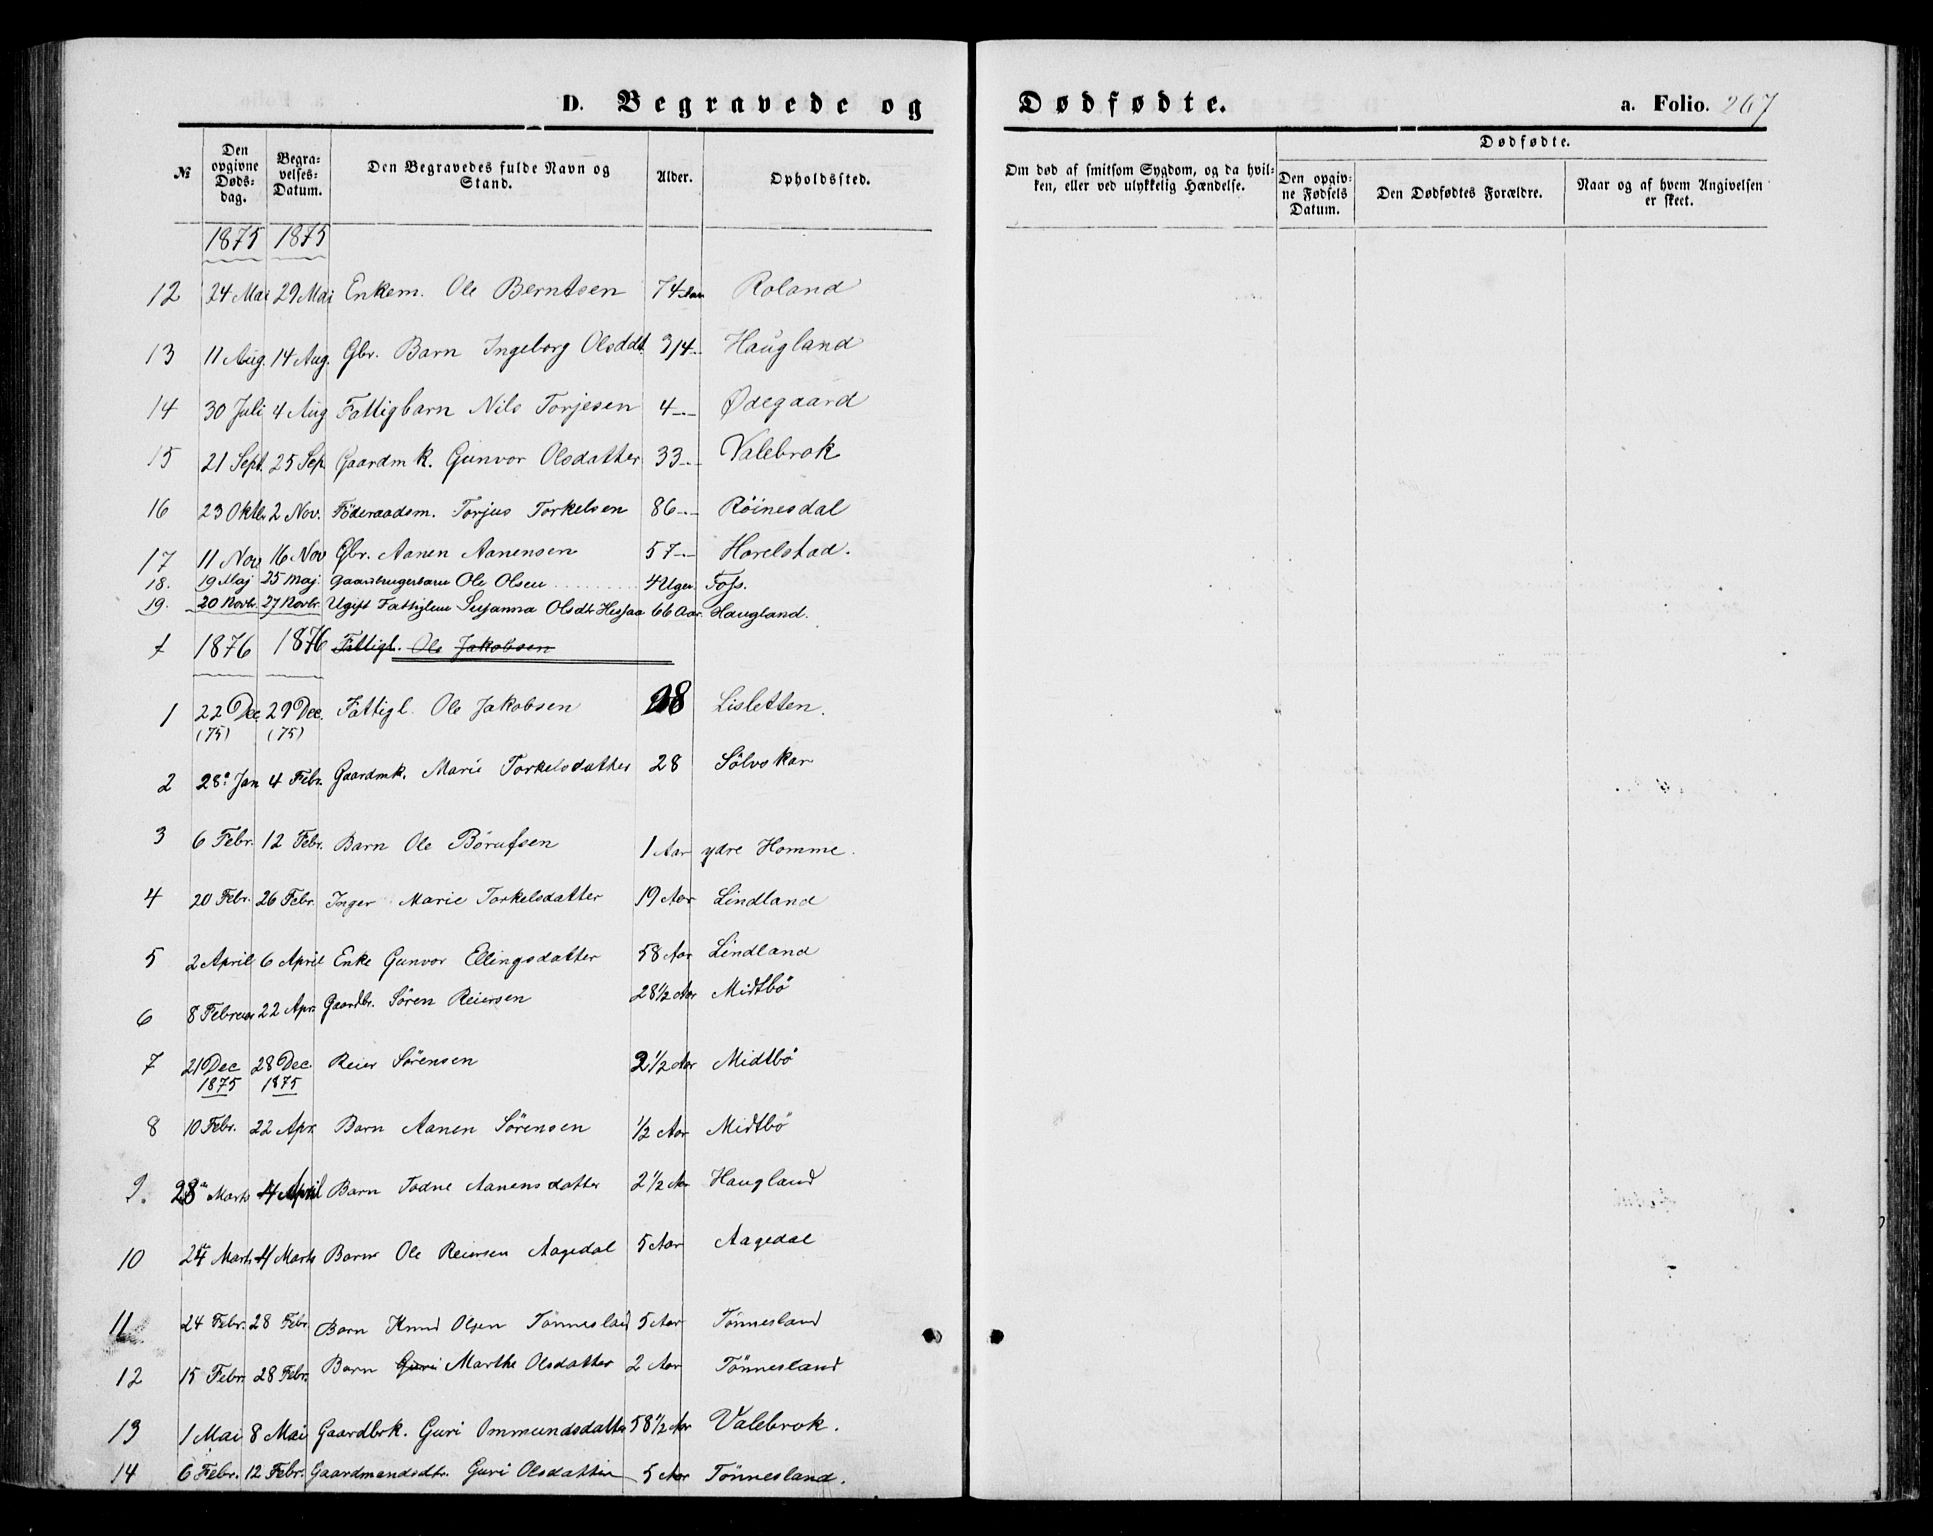 D. Begravede og Dødfødte. a. Folio. 267
№ Den opgivne Døds-dag. Begra-velses-Datum. Den Begravedes fulde Navn og Stand. Alder. Opholdssted. Om død af smitsom Sygdom, og da hvil-ken, eller ved ulykkelig Hændelse. Dødfødte. Den opgiv-ne Fødsels Datum. Den Dødfødtes Forældre. Naar og af hvem Angivelsen er skeet.
1875 1875
12 24 Mai 29 Mai Enkem. Ole Berntsen 74 Aar Roland
13 11 Aug. 14 Aug. Gbr. Barn Ingeborg Olsddt 3/4 -.- Haugland
14 30 Juli 4 Aug Fattigbarn Nils Torjesen 4 -.- Ødegaard
15 21 Sept. 25 Sep Gaardmk. Gunvor Olsdatter 33 -.- Valebrok
16 23 Oktbr 2 Nov. Föderaadsm. Torjus Torkelsen 86 -.- Röinesdal
17 11 Nov 16 Nov Gbr. Aanen Aanensen 57 -.- Horelstad.
18. 19 Maj 25 Maj. Gaardbrugerbarn Ole Olsen 4 Uger. Foss.
19. 20 Novb. 27 Novbr. Ugift Fattiglem Susanna Olsdtr Hessaa 66 Aar. Haugland.
1 1876 1876 Fattigl. Ole Jakobsen
1 22 Dec. (75) 29 Dec. (75) Fattigl. Ole Jakobsen 28 Lisletten.
2 28. Jan 4 Febr. Gaardmk. Marie Torkelsdatter 28 Sölvskar
3 6 Febr. 12 Febr. Barn Ole Börufsen 1 Aar ydre Homme.
4 20 Febr. 26 Febr. Inger Marie Torkelsdatter 19 Aar Lindland
5 2 April 6 April Enke Gunvor Ellingsdatter 58 Aar Lindland
6 8 Februar 22 Apr. Gaardbr. Sören Reiersen 28 1/2 Aar Midtbö
7 21 Dec 1875 28 Dec. 1875 Reier Sörensen 2 1/2 Aar Midtbö
8 10 Febr. 22 Apr. Barn Aanen Sörensen 1/2 Aar Midtbö
9. 28 Marts 4 April Barn Todne Aanensdatter 2 1/2 Aar Haugland
10 24 Marts 4 Marts Barn Ole Reiersen Aagedal 5 Aar Aagedal
11 24 Febr. 28 Febr. Barn Knud Olsen Tönnesland 5 Aar Tönnesland
12 15 Febr. 28 Febr. Barn Guri Marthe Olsdatter 2 Aar Tönnesland
13 1 Mai 8 Mai Gaardbrk. Guri Ommundsdatter 58 1/2 Aar Valebrok.
14 6 Febr. 12 Febr. Gaardmandsdtr. Guri Olsdatter 5 Aar Tönnesland.